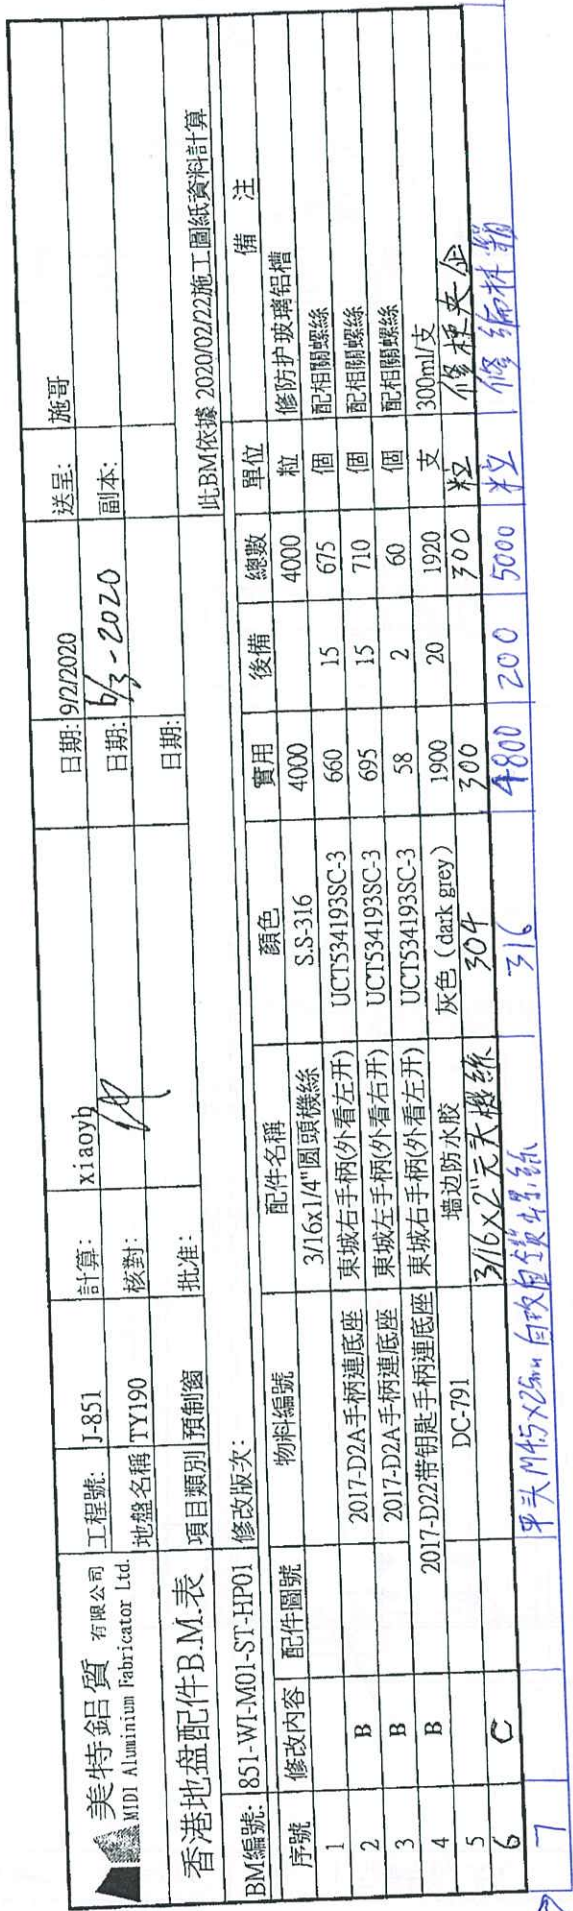 美特鋁質 有限公司
MIDI Aluminium Fabricator Ltd.
工程號: J-851 計算: xiaoyb 日期: 9/2/2020 送呈: 施哥
地盤名稱 TY190 核對: 日期: 6/3-2020 副本:
香港地盘配件B.M.表 項目類別 預制窗 批准: 日期:
BM編號: 851-WI-M01-ST-HP01 修改版次: 此BM依據 2020/02/22施工圖紙資料計算
序號 修改内容 配件圖號 物料編號 配件名稱 顏色 實用 後備 總數 單位 備 注
1 3/16x1/4"圆頭機絲 S.S-316 4000 4000 粒 修防护玻璃铝槽
2 B 2017-D2A手柄連底座 東城右手柄(外看左开) UCT534193SC-3 660 15 675 個 配相關螺絲
3 B 2017-D2A手柄連底座 東城左手柄(外看右开) UCT534193SC-3 695 15 710 個 配相關螺絲
4 B 2017-D22带钥匙手柄連底座 東城右手柄(外看左开) UCT534193SC-3 58 2 60 個 配相關螺絲
5 DC-791 墙边防水胶 灰色（dark grey） 1900 20 1920 支 300ml/支
6 C 3/16x2"元头機絲 304 300 300 粒 修極夾企
7 平头M4.5x25mm自攻自鑽螺絲 316 4800 200 5000 粒 修